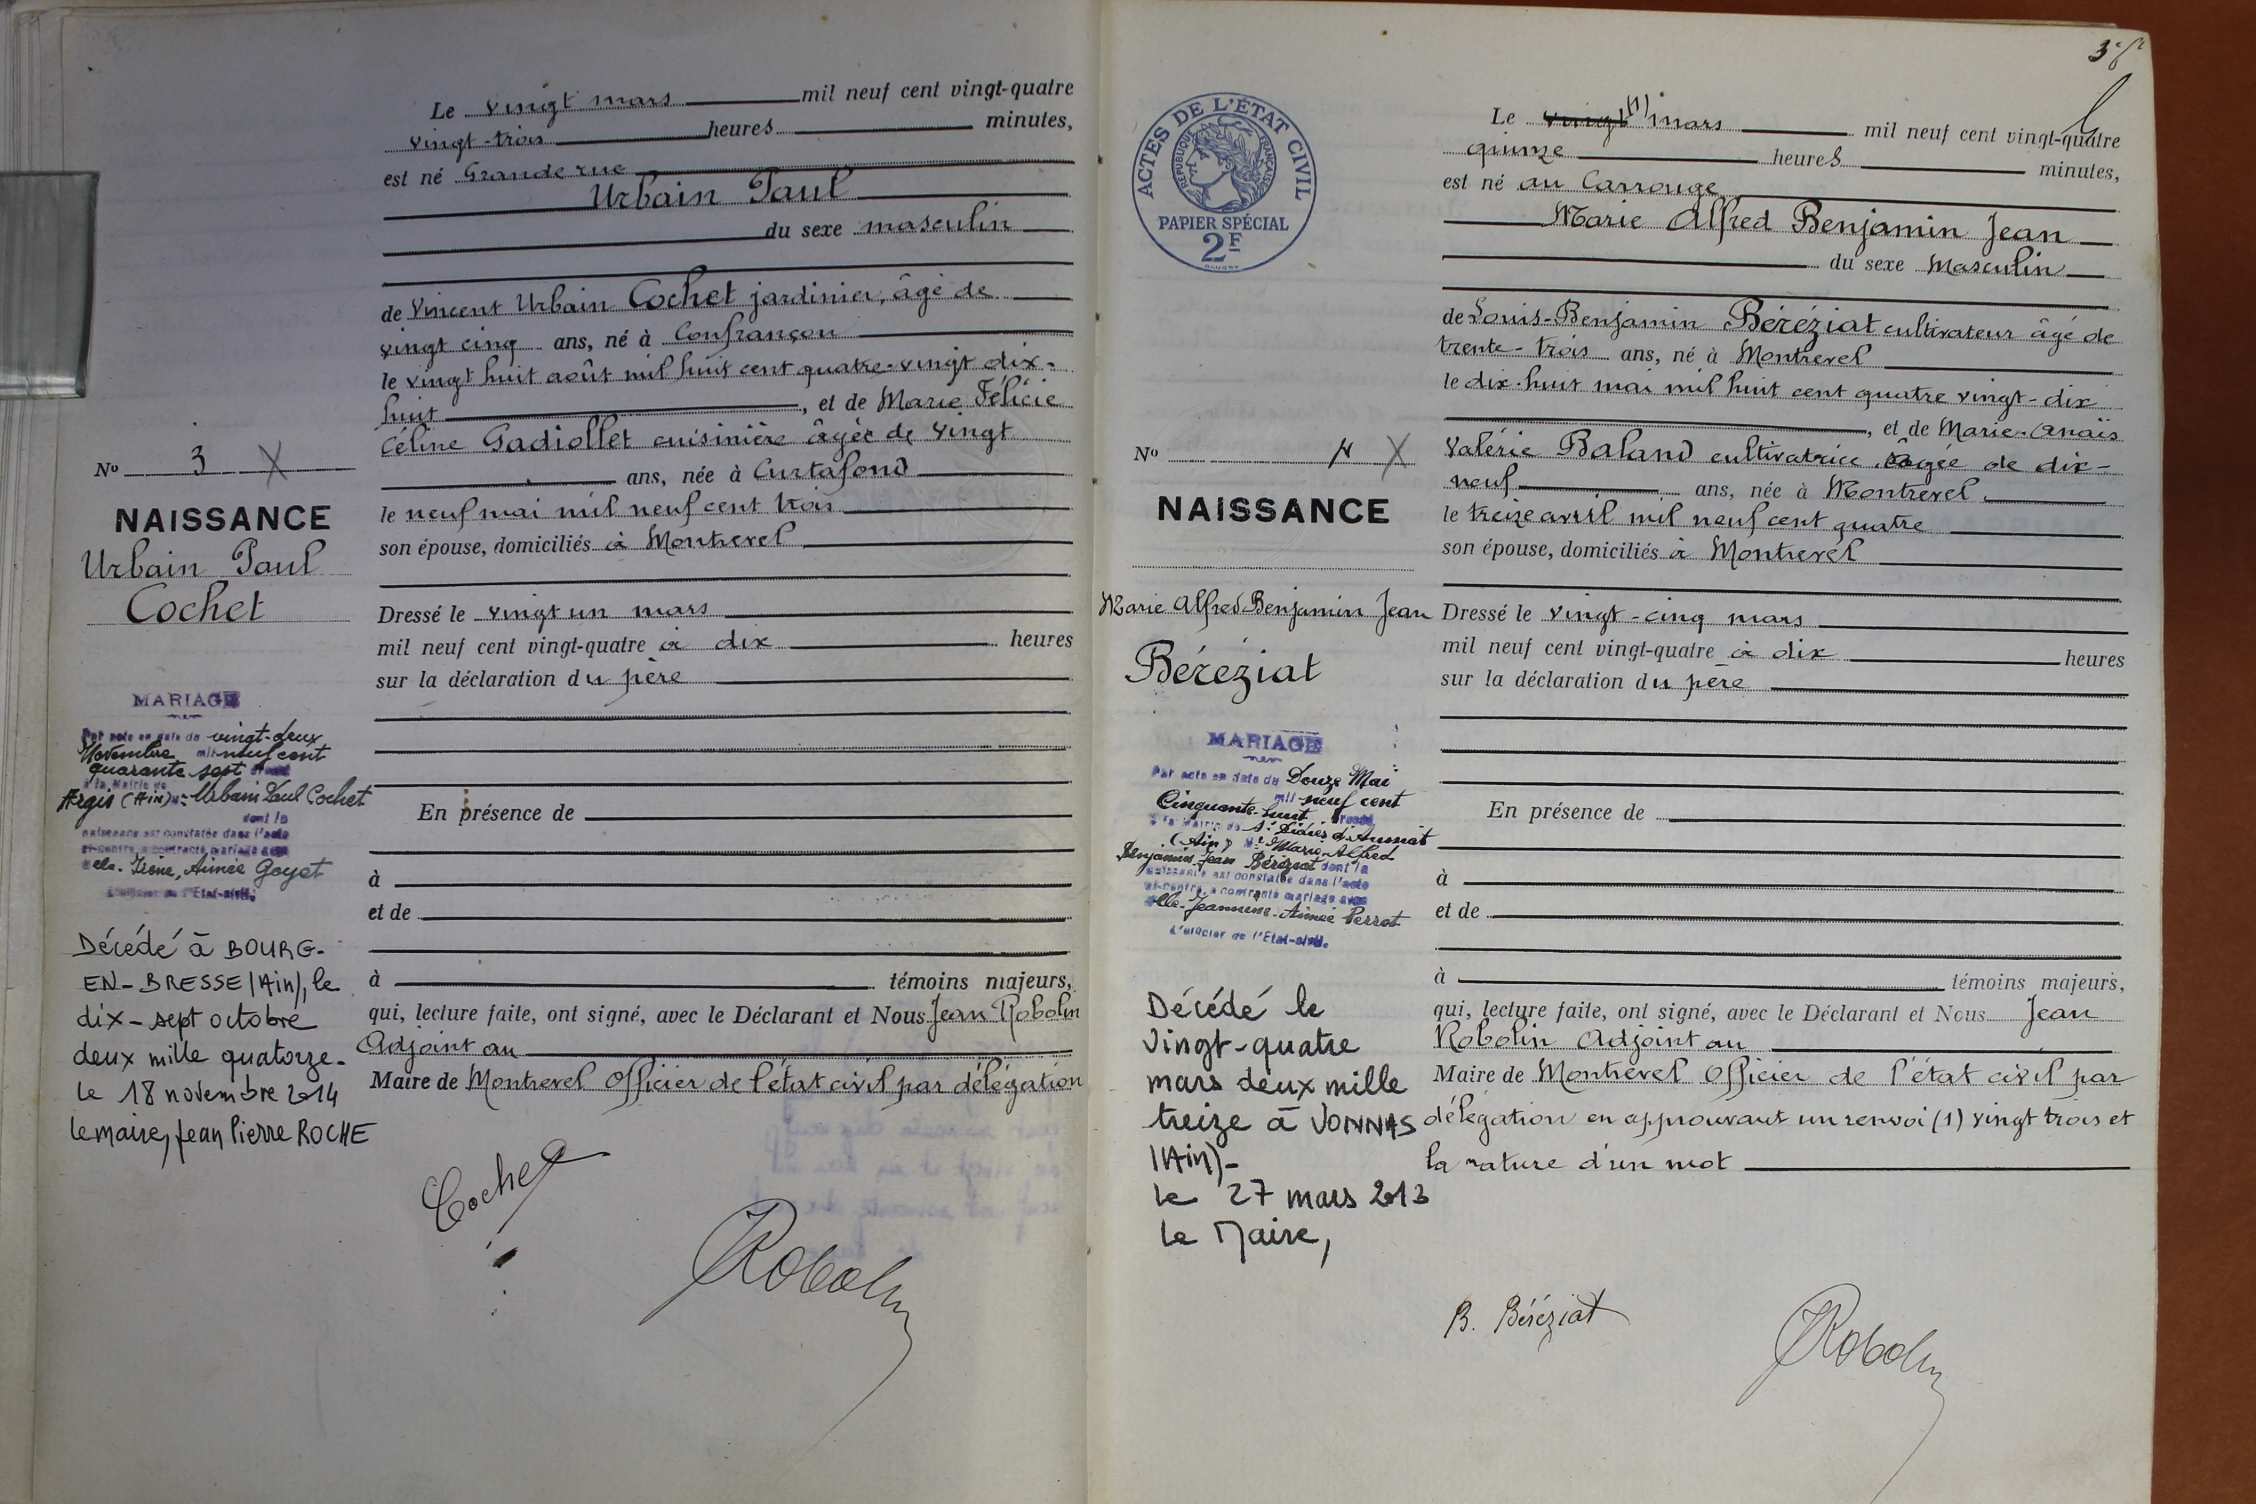 Le vingt mars mil neuf cent vingt-quatre
vingt-trois heures minutes,
est né Grande rue
Urbain Paul
du sexe masculin
de Vincent Urbain Cochet jardinier, âgé de
vingt cinq ans, né à Confrançon
le vingt huit août mil huit cent quatre-vingt dix-
huit, et de Marie Félicie
Céline Gadiollet cuisinière âgée de vingt
ans, née à Curtafond
le neuf mai mil neuf cent trois
son épouse, domiciliés à Montrevel
Dressé le vingt un mars
mil neuf cent vingt-quatre à dix heures
sur la déclaration du père
En présence de
à
et de
à témoins majeurs,
qui, lecture faite, ont signé, avec le Déclarant et Nous Jean Robolin
Adjoint au
Maire de Montrevel Officier de l'état civil par délégation
Cochet
Robolin
No 3 X
NAISSANCE
Urbain Paul
Cochet
MARIAGE
Par acte en date du vingt-deux
Novembre mil neuf cent
quarante sept dressé
à la Mairie de
Argis (Ain) Urbain Paul Cochet
dont la
naissance est constatée dans l'acte
ci-contre, a contracté mariage avec
elle. Irène, Aimée Goyet
L'officier de l'Etat-civil.
Décédé à BOURG-
EN-BRESSE (Ain), le
dix-sept octobre
deux mille quatorze.
Le 18 novembre 2014
le maire, Jean Pierre ROCHE
ACTES DE L'ÉTAT CIVIL
RÉPUBLIQUE FRANÇAISE
PAPIER SPÉCIAL
2F
Le vingt (1) mars mil neuf cent vingt-quatre
quinze heures minutes,
est né au Carrouge
Marie Alfred Benjamin Jean
du sexe Masculin
de Louis-Benjamin Béréziat cultivateur âgé de
trente-trois ans, né à Montrevel
le dix-huit mai mil huit cent quatre vingt-dix
, et de Marie-Anaïs
Valérie Baland cultivatrice âgée de dix-
neuf ans, née à Montrevel
le treize avril mil neuf cent quatre
son épouse, domiciliés à Montrevel
Dressé le vingt-cinq mars
mil neuf cent vingt-quatre à dix heures
sur la déclaration du père
En présence de
à
et de
à témoins majeurs,
qui, lecture faite, ont signé, avec le Déclarant et Nous Jean
Robolin Adjoint au
Maire de Montrevel Officier de l'état civil par
délégation en approuvant un renvoi (1) vingt trois et
la rature d'un mot
B. Béréziat
Robolin
No 4 X
NAISSANCE
Marie Alfred Benjamin Jean
Béréziat
MARIAGE
Par acte en date du Douze Mai
mil neuf cent
Cinquante-huit dressé
à la Mairie de St Didier d'Aussiat
(Ain) Mr Marie-Alfred
Benjamin-Jean Béréziat dont la
naissance est constatée dans l'acte
ci-contre, a contracté mariage avec
elle-Jeannine-Aimée Perrot
L'officier de l'Etat-civil.
Décédé le
vingt-quatre
mars deux mille
treize à VONNAS
(Ain)-
le 27 mars 2013
le Maire,